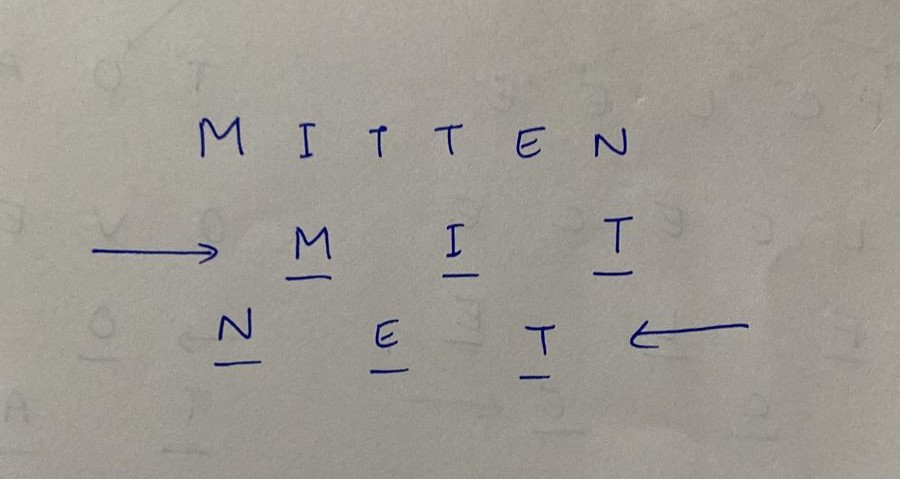 M I T T E N
→ M I T
N E T ←